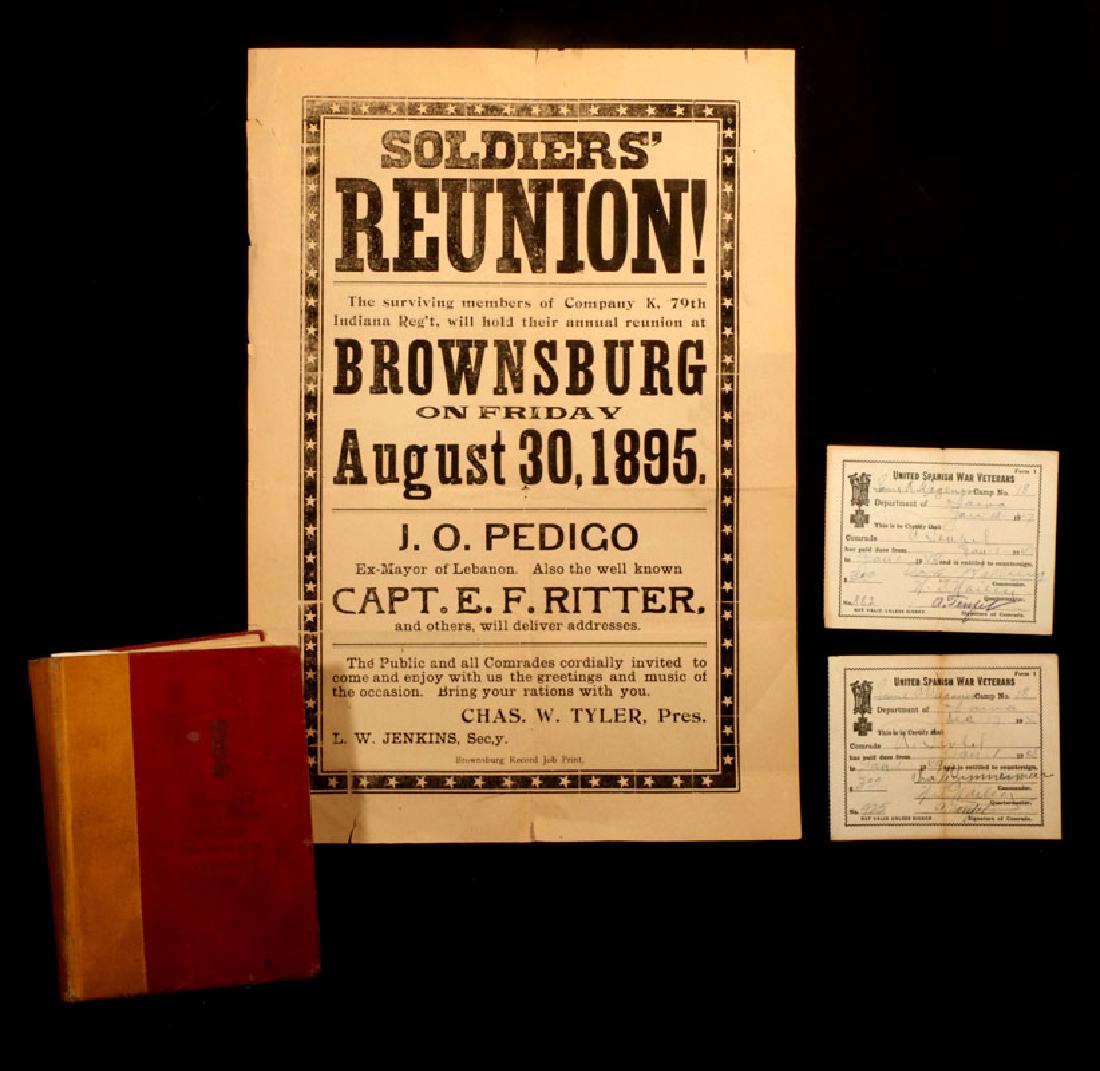 SOLDIERS'
REUNION!
The surviving members of Company K. 79th
Indiana Reg't, will hold their annual reunion at
BROWNSBURG
ON FRIDAY
August 30, 1895.
J. O. PEDIGO
Ex-Mayor of Lebanon. Also the well known
CAPT. E. F. RITTER,
and others, will deliver addresses.
The Public and all Comrades cordially invited to
come and enjoy with us the greetings and music of
the occasion. Bring your rations with you.
CHAS. W. TYLER, Pres.
L. W. JENKINS, Sec,y.
Brownsburg Record Job Print.
Form 1
UNITED SPANISH WAR VETERANS
Camp No. 18
Department of
This is to Certify that
Comrade
has paid dues from
to and is entitled to countersign.
$ 300
Commander.
Quartermaster.
No. 882
NOT VALID UNLESS SIGNED Signature of Comrade.
Form 1
UNITED SPANISH WAR VETERANS
Camp No. 18
Department of
This is to Certify that
Comrade
has paid dues from
to and is entitled to countersign.
$ 300
Commander.
Quartermaster.
No. 925
NOT VALID UNLESS SIGNED Signature of Comrade.